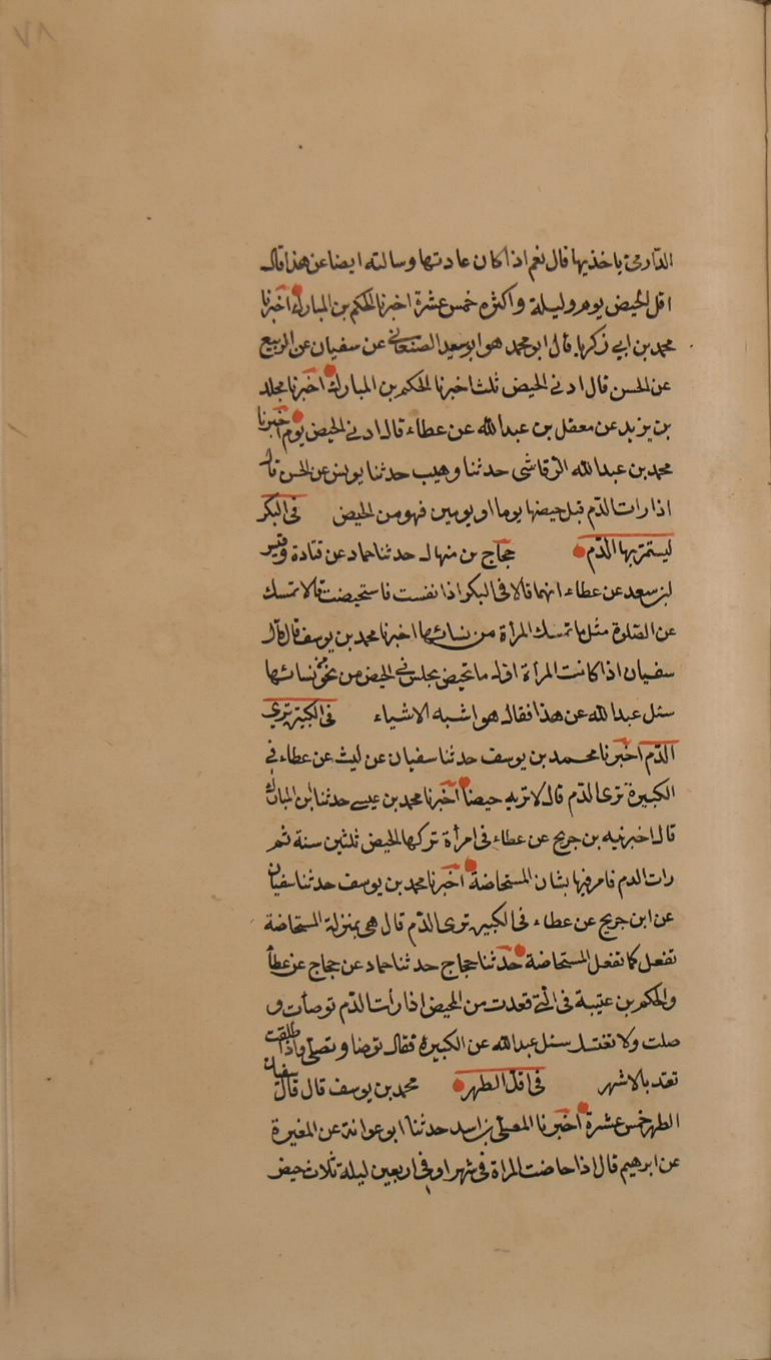 الدارمي تاخذ بهذا قال نعم اذا كان عادتها وسالته ايضا عن هذا قال
اقل الحيض يوم وليلة واكثره خمس عشرة اخبرنا الحكم بن المبارك اخبرنا
محمد بن ابي زكريا قال ابو محمد هو ابو سعيد الصنعاني عن سفيان عن الربيع
عن الحسن قال ادنى الحيض ثلث اخبرنا الحكم بن المبارك اخبرنا مخلد
بن يزيد عن معقل بن عبد الله عن عطاء قال ادنى الحيض يوم اخبرنا
محمد بن عبد الله الرقاشى حدثنا وهيب حدثنا يونس عن الحسن قال
اذا رات الدم قبل حيضها يوما او يومين فهو من الحيض في البكر
ليستمر بها الدم حجاج بن منهال حدثنا حماد عن قتادة وقيس
بن سعد عن عطاء انهما قالا في البكر اذا نفست فاستحيضت قالا تمسك
عن الصلوة مثل ما تمسك المرأة من نسائها اخبرنا محمد بن يوسف قال قال
سفيان اذا كانت المرأة اول ما تحيض تجلس في الحيض من نحو نسائها
سئل عبد الله عن هذا فقال هو اشبه الاشياء في الكبيرة ترى
الدم اخبرنا محمد بن يوسف حدثنا سفيان عن ليث عن عطاء في
الكبيرة ترى الدم قال لا تريه حيضا اخبرنا محمد بن عيسى حدثنا ابن المبارك
قال اخبرنيه بن جريج عن عطاء في امرأة تركها الحيض ثلثين سنة ثم
رات الدم فامر فيها بشان المستحاضة اخبرنا محمد بن يوسف حدثنا سفيان
عن ابن جريج عن عطاء في الكبيرة ترى الدم قال هي بمنزلة المستحاضة
تفعل كما تفعل المستحاضة حدثنا حجاج حدثنا حماد عن حجاج عن عطا
والحكم بن عتيبة في التي قعدت من المحيض اذا رأت الدم توضأت و
صلت ولا تغتسل سئل عبد الله عن الكبيرة فقال توضا وتصلي واذا طلقت
تعتد بالاشهر في اقل الطهر محمد بن يوسف قال قال سفيان
الطهر خمس عشرة اخبرنا المعلى بن اسد حدثنا ابو عوانة عن المغيرة
عن ابرهيم قال اذا حاضت المرأة في شهر او في اربعين ليلة ثلاث حيض